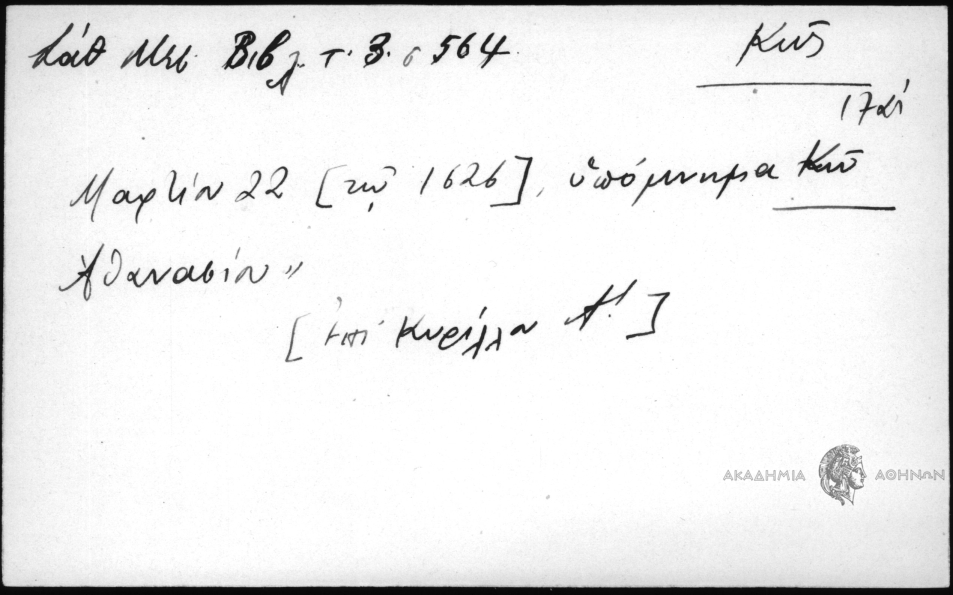 Σάθ Μεσ. Βιβλ. τ. 3. σ 564.
Κῶς
17
Μαρτίου 22 [τῷ 1626], ὑπόμνημα Κῶ
Ἀθανασίου "
[ἐπὶ Κυρίλλου Α!]
ΑΚΑΔΗΜΙΑ ΑΘΗΝΩΝ